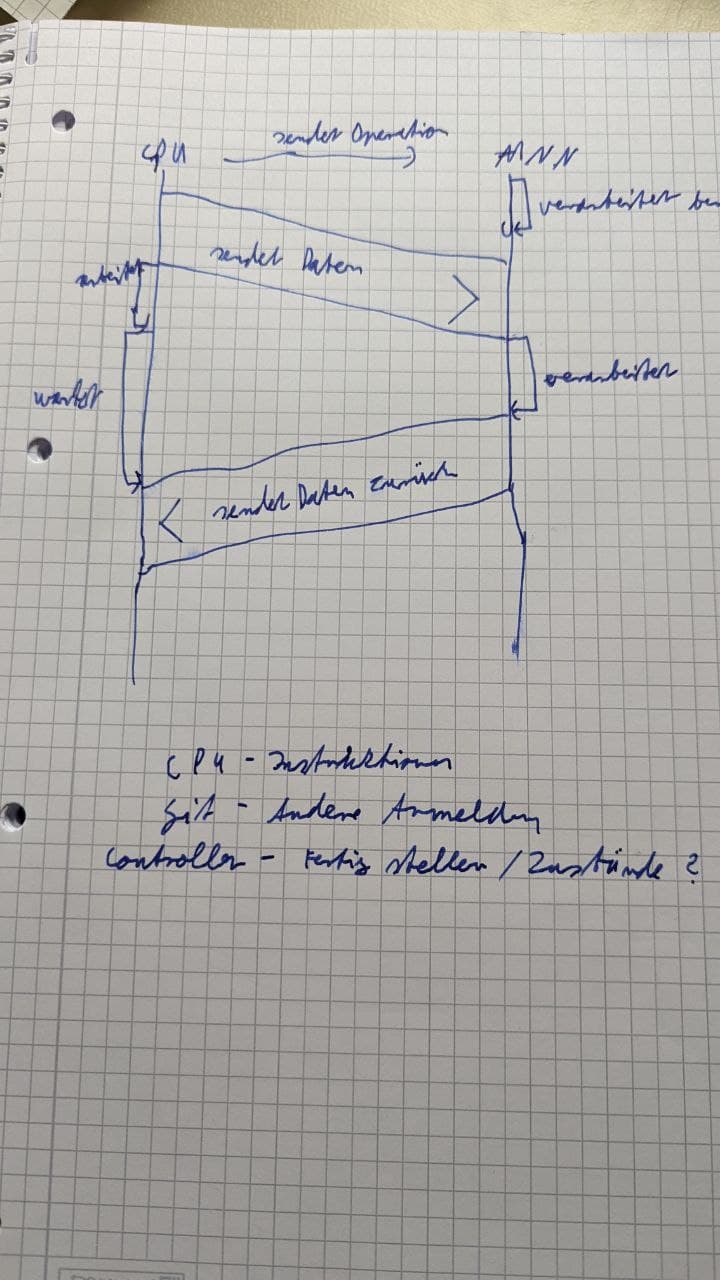 sendet Operation
CPU
verarbeitet
sendet Daten
arbeitet
verarbeitet
wartet
sendet Daten zurück
CPU - Instruktionen
Git - Andere Anmelden
Controller - Fertig stellen / Zustände ?